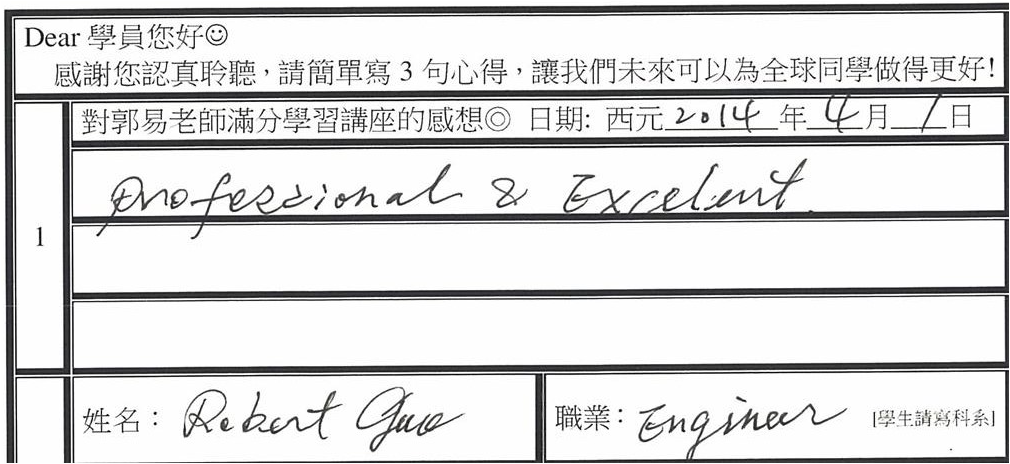 Dear 學員您好☺
感謝您認真聆聽，請簡單寫 3 句心得，讓我們未來可以為全球同學做得更好!
對郭易老師滿分學習講座的感想◎ 日期: 西元 2014 年 4 月 1 日
Professional & Excelent.
1
姓名： Robert Guo 職業： Engineer [學生請寫科系]